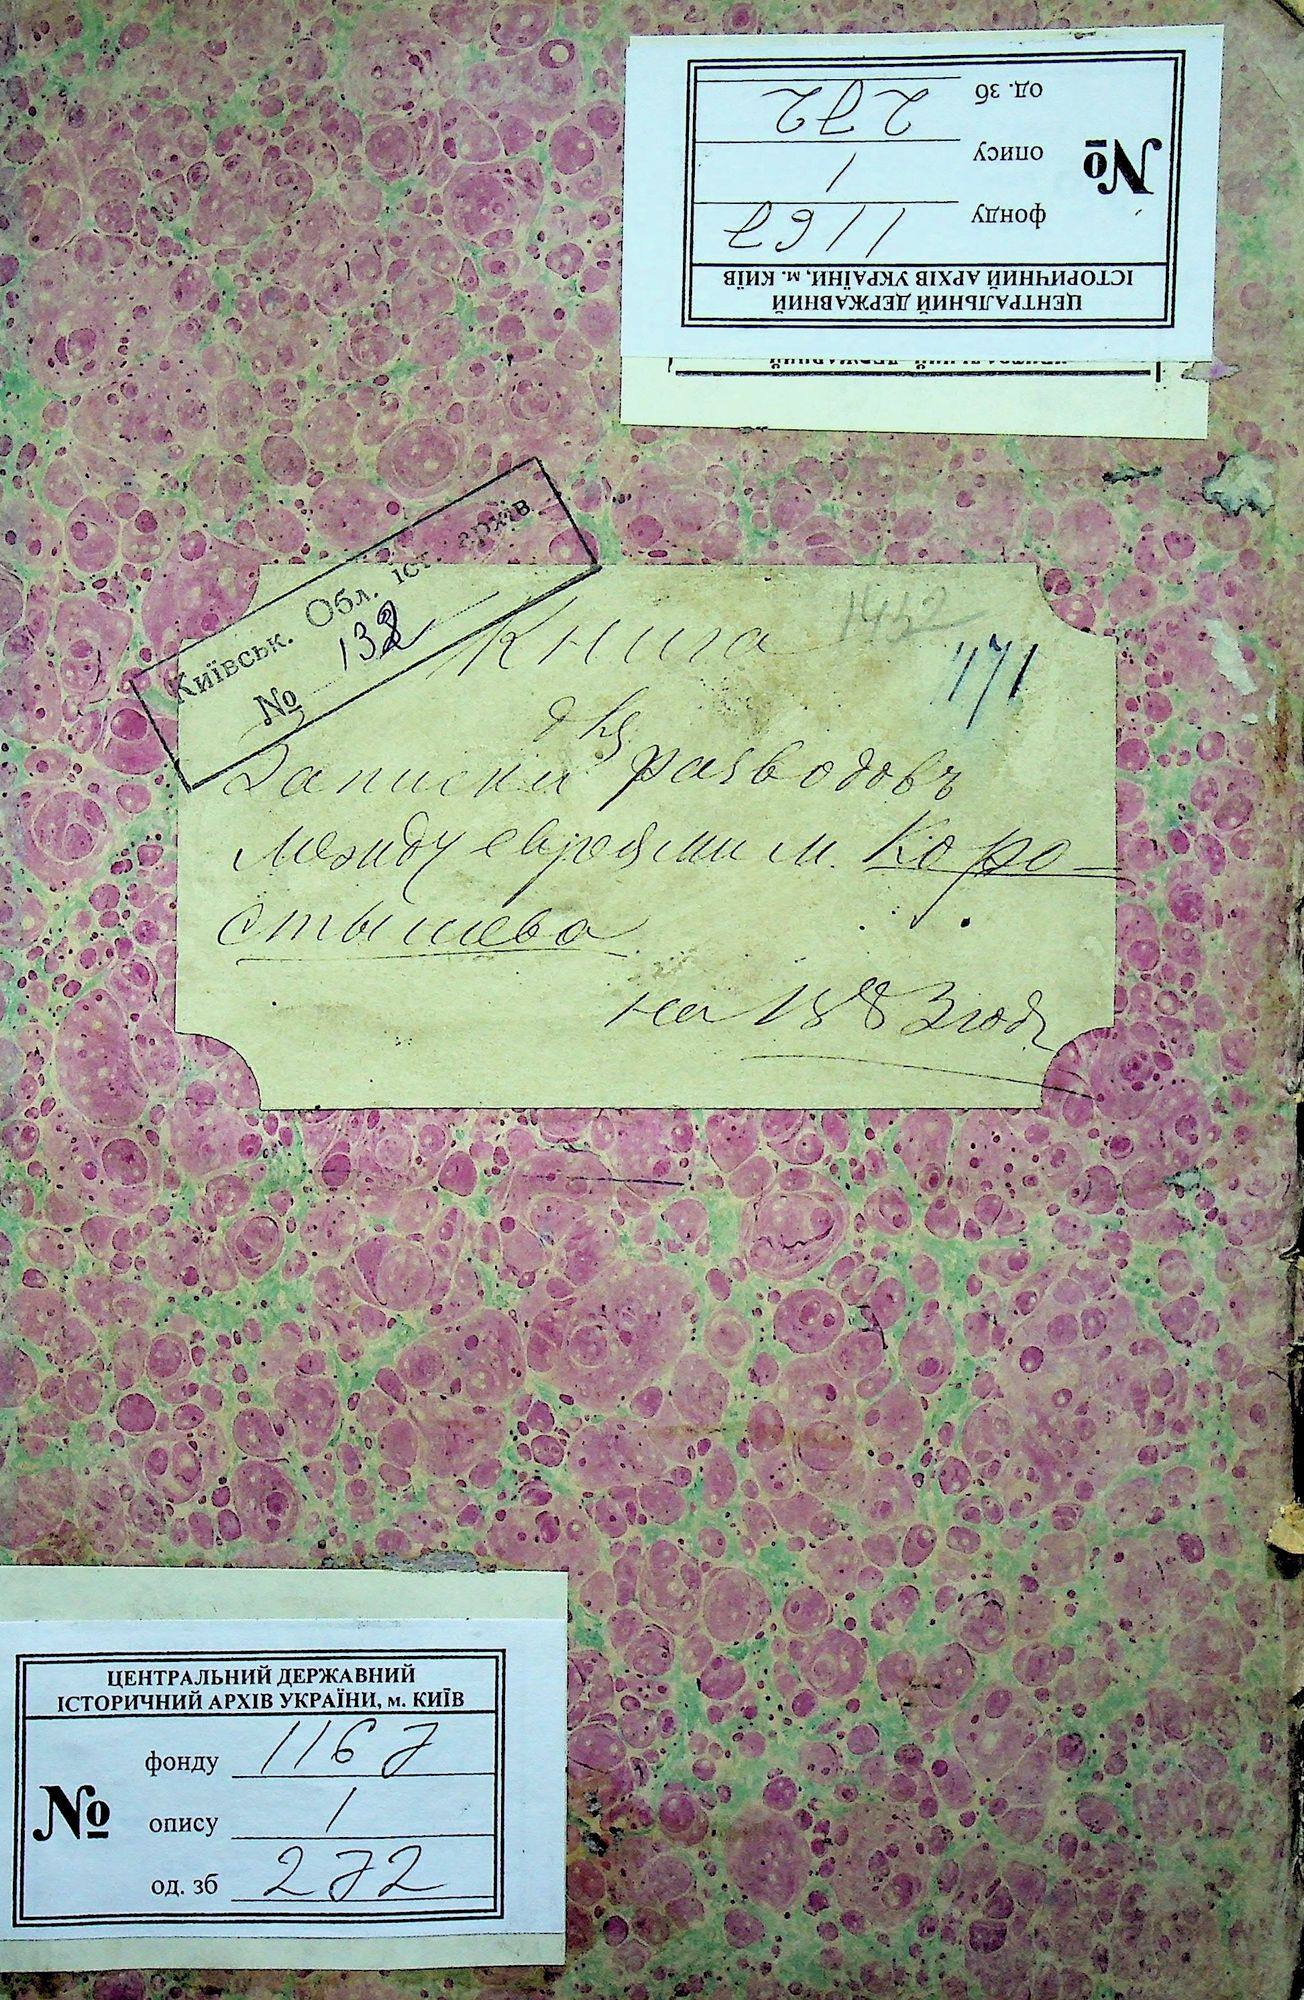 ЦЕНТРАЛЬНИЙ ДЕРЖАВНИЙ
ІСТОРИЧНИЙ АРХІВ УКРАЇНИ, м. КИЇВ
№
фонду 1167
опису 1
од. зб 272
ЦЕНТРАЛЬНИЙ ДЕРЖАВНИЙ
Київськ. Обл. іст. архів
№ 132
1432
Книга
771
для
Записки разводовъ
между евреями м. Коро-
стышева
на 1883 годъ
ЦЕНТРАЛЬНИЙ ДЕРЖАВНИЙ
ІСТОРИЧНИЙ АРХІВ УКРАЇНИ, м. КИЇВ
№
фонду 1167
опису 1
од. зб 272